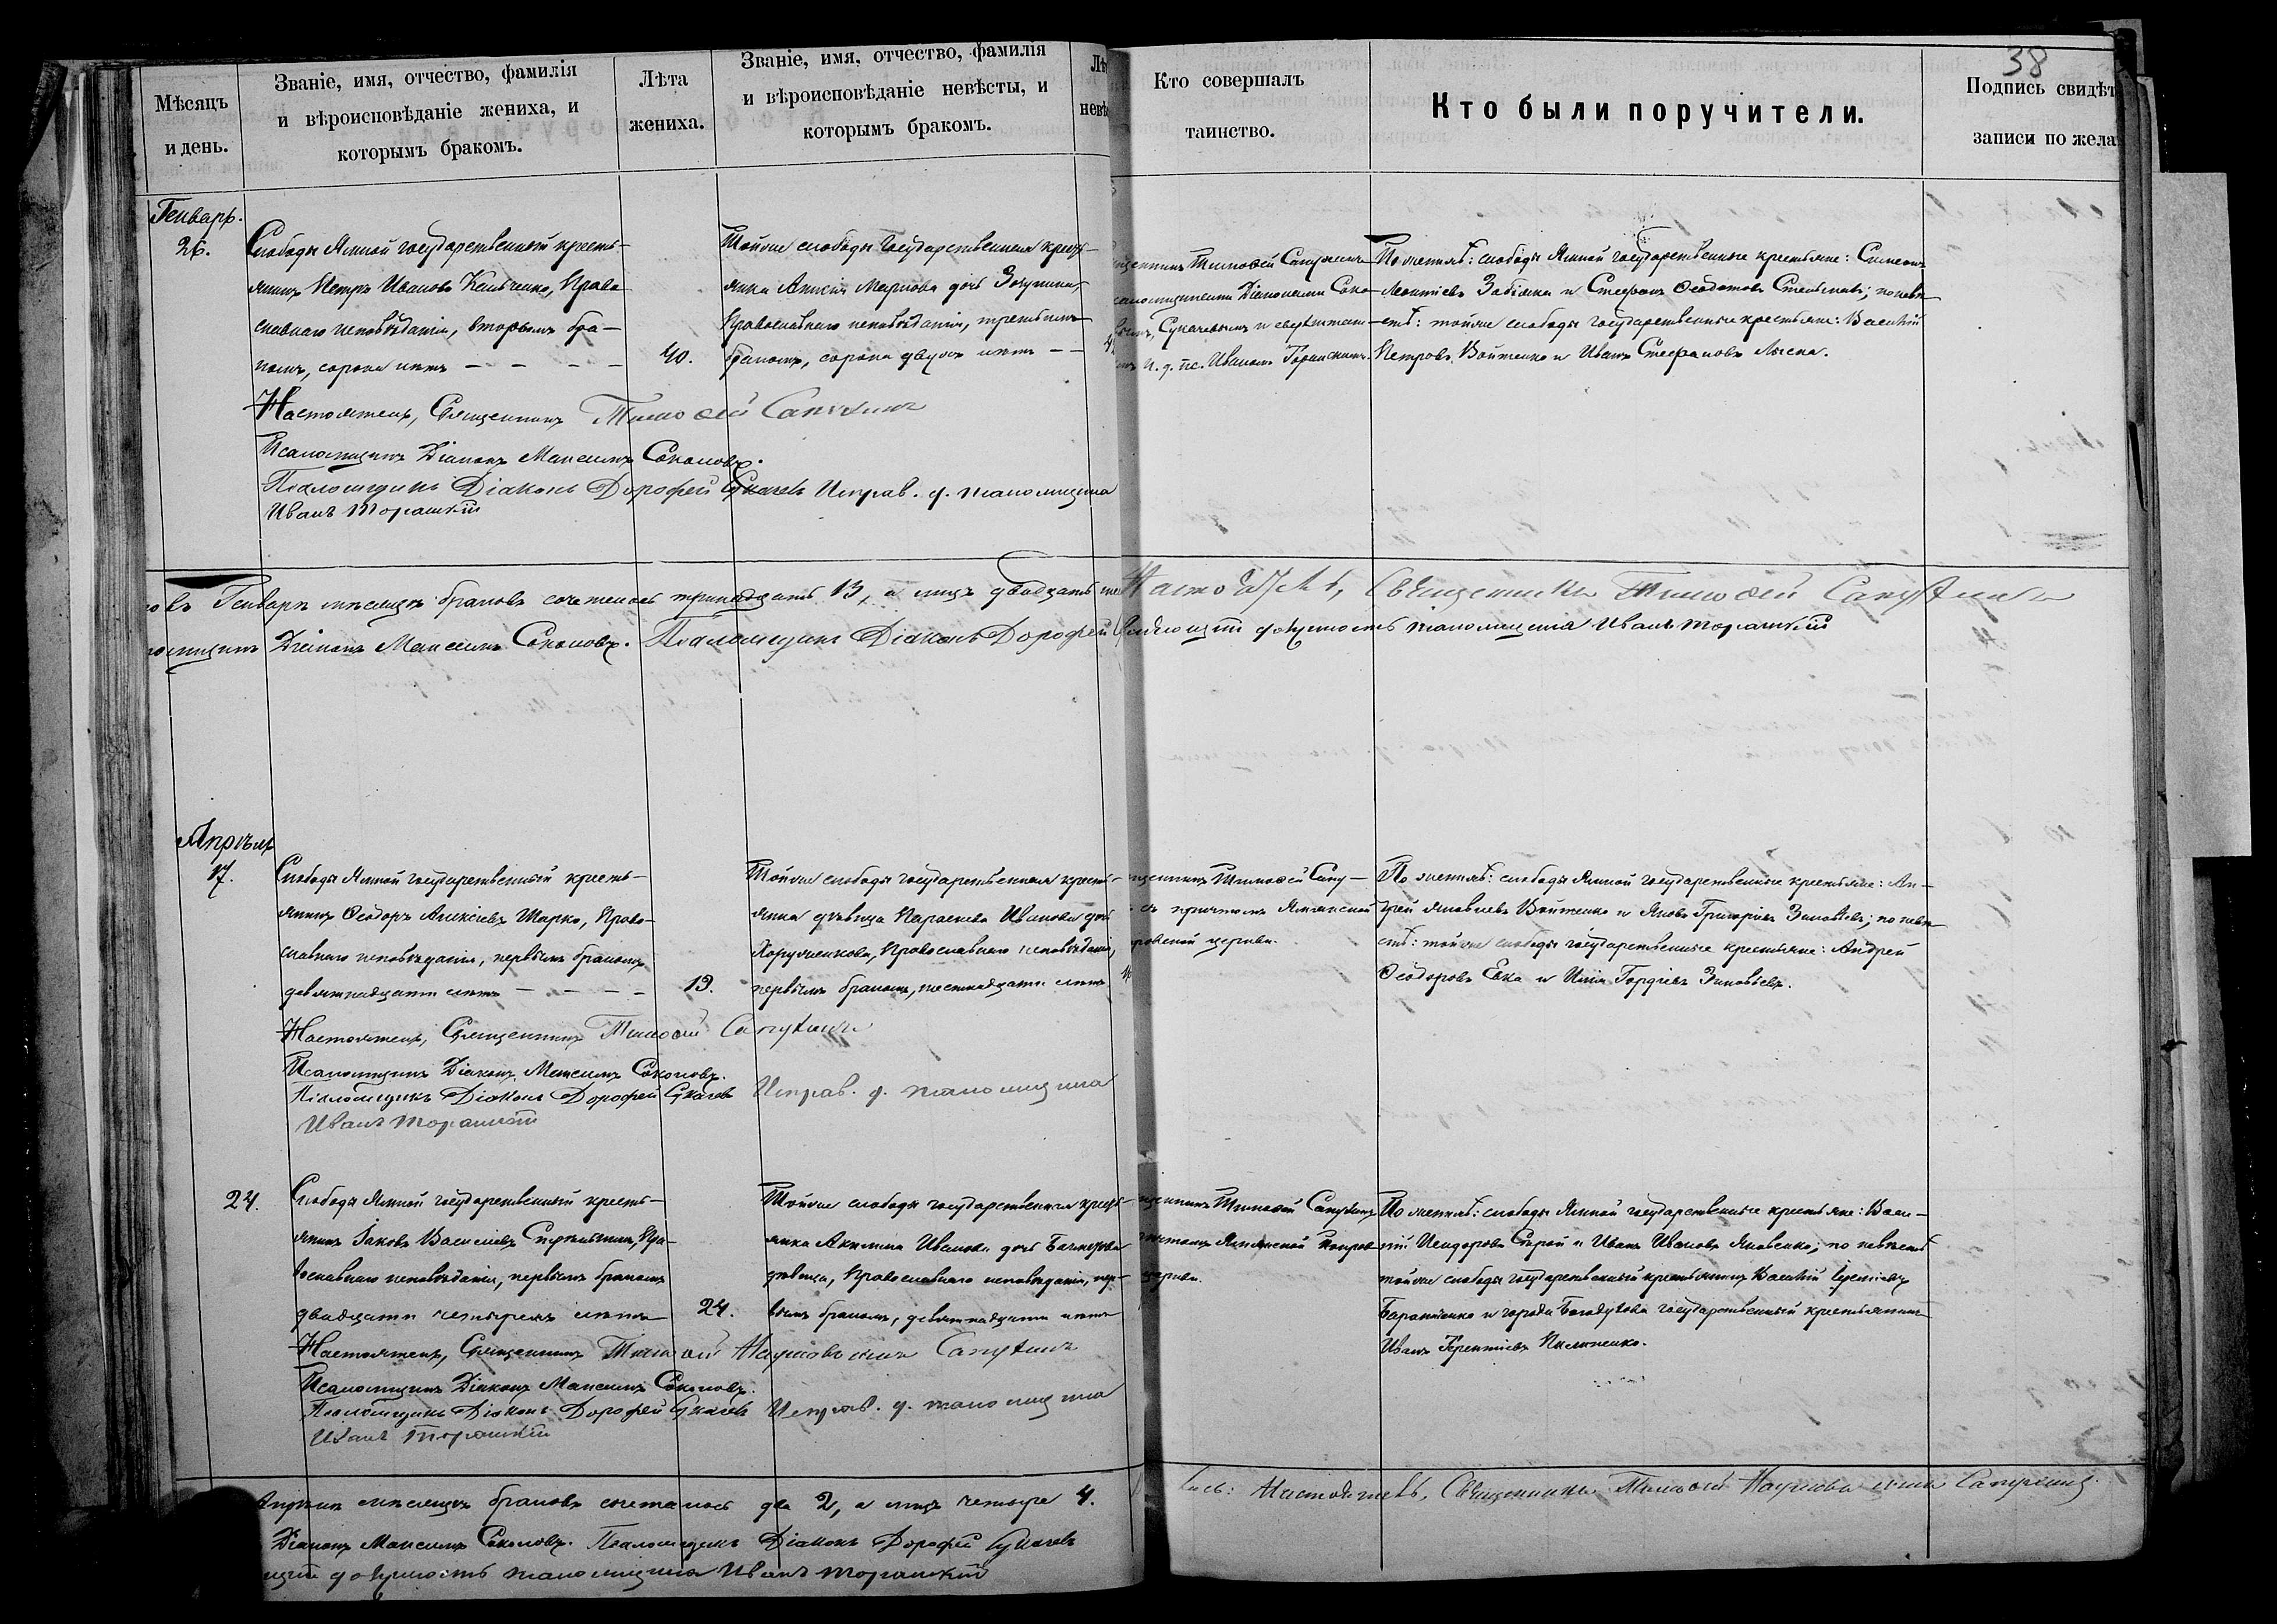 38
Мѣсяцъ
и день.
Званіе, имя, отчество, фамилія
и вѣроисповѣданіе жениха, и
которымъ бракомъ.
Лѣта
жениха.
Званіе, имя, отчество, фамилія
и вѣроисповѣданіе невѣсты, и
которымъ бракомъ.
Лѣ
невѣ
Кто совершалъ
таинство.
Кто были поручители.
Подпись свидѣт
записи по жела
Генварь.
26.
Слободы Ямной государственный кресть-
янинъ Петръ Ивановъ Кельченко, Право
славнаго исповѣданія, вторымъ бра-
комъ, сорока лѣтъ
40.
Тойже слободы государственная кресть-
янка Анисія Маркова дочь
Православнаго исповѣданія, третьимъ
бракомъ, сорока двухъ лѣтъ
4
щенникъ Тимофей Сапухинъ
псаломщиками Діаконами Соко
вымъ, Сукачевымъ и
и. д. пс. Иваномъ Торанскимъ.
По женихѣ: слободы Ямной государственные крестьяне: Симеонъ
Леонтіевъ Забіяка и Стефанъ Ѳеодотовъ Стельмахъ; по невѣ
стѣ: тойже слободы государственные крестьяне: Василій
Петровъ Войтенко и Иванъ Стефановъ Лыска.
Настоятель, Священникъ Тимоѳей Сапухинъ
Псаломщикъ Діаконъ Максимъ Соколовъ.
Псаломщикъ Діаконъ Дорофей Сукачевъ Исправ. д. псаломщика
Иванъ Торанскій
овъ Генварѣ мѣсяцѣ браковъ сочеталось тринадцать 13, а лицъ двадцать ше
Настоятель, Священникъ Тимоѳей Сапухинъ
ломщикъ Діаконъ Максимъ Соколовъ. Псаломщикъ Діаконъ Дорофей
должность псаломщика Иванъ Торанскій
Апрѣль
17.
Слободы Ямной государственный кресть-
янинъ Ѳеодоръ Алексіевъ Шарко, Право-
славнаго исповѣданія, первымъ бракомъ
девятнадцати лѣтъ
19.
Тойже слободы государственная кресть-
янка дѣвица Параскева Иванова дочь
Хоружекнова, Православнаго исповѣданія,
первымъ бракомъ, шестнадцати лѣтъ
щенникъ Тимоѳей Сапу-
съ причтомъ Ямянской
ровской церкви.
По женихѣ: слободы Ямной государственные крестьяне: Ан-
дрей Яковлевъ Войтенко и Яковъ Григоріевъ Зиновьевъ; по невѣ
стѣ: тойже слободы государственные крестьяне: Андрей
Ѳеодоровъ Ека и Илія Гордіевъ Зиновьевъ.
Настоятель, Священникъ Тимоѳей Сапухинъ
Псаломщикъ Діаконъ Максимъ Соколовъ.
Псаломщикъ Діаконъ Дорофей Сукачевъ Исправ. д. псаломщика
Иванъ Торанскій
24.
Слободы Ямной государственный кресть-
янинъ Іаковъ Василіевъ Стрѣльникъ, Пра-
вославнаго исповѣданія, первымъ бракомъ
двадцати четырехъ лѣтъ
24.
Тойже слободы государственная кресть-
янка Акилина Иванова дочь
дѣвица, Православнаго исповѣданія, пер-
вымъ бракомъ, девятнадцати лѣтъ
щенникъ Тимоѳей Сапухинъ
причтомъ Ямянской Покров
церкви.
По женихѣ: слободы Ямной государственные крестьяне: Васи-
лій Исидоровъ Сѣрой и Иванъ Ивановъ Яковенко; по невѣстѣ
тойже слободы государственный крестьянинъ Василій
и города Богодухова государственный крестьянинъ
Иванъ Терентіевъ Пилипенко.
Настоятель, Священникъ Тимоѳей Наумовъ сынъ Сапухинъ
Псаломщикъ Діаконъ Максимъ Соколовъ.
Псаломщикъ Діаконъ Дорофей Сукачевъ Исправ. д. псаломщика
Иванъ Торанскій
Апрѣлѣ мѣсяцѣ браковъ сочеталось два 2, а лицъ четыре 4.
Настоятель, Священникъ Тимоѳей Наумовъ сынъ Сапухинъ.
Діаконъ Максимъ Соколовъ. Псаломщикъ Діаконъ Дорофей Сукачевъ
щій должность псаломщика Иванъ Торанскій